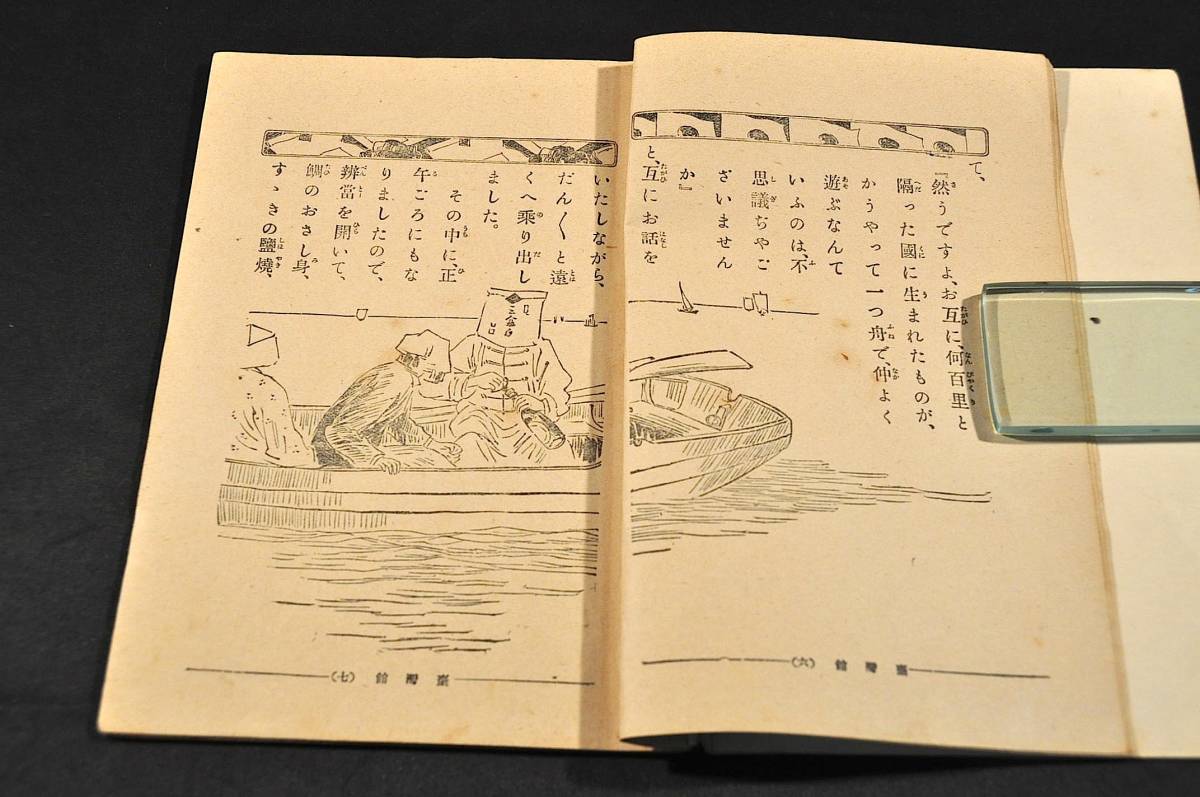 て、
『然うですよ、お互に、何百里と
隔った國に生まれたものが、
かうやって一つ舟で仲よく
遊ぶなんて
いふのは、不
思議ぢやご
ざいません
か』
と、互にお話を
(六) 臺灣館
いたしながら、
だん〱と遠
くへ乘り出し
ました。
その中に、正
午ごろにもな
りましたので、
辨當を開いて、
鯛のおさし身、
すゝきの鹽燒、
(七) 臺灣館